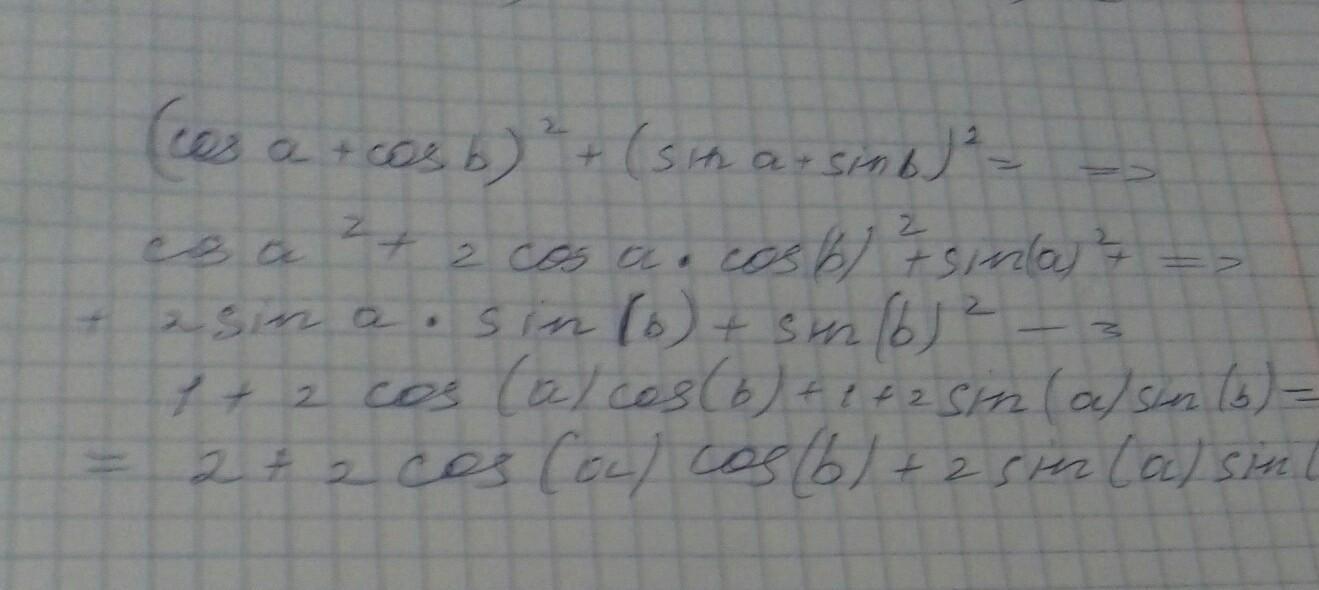 (cos a + cos b)² + (sin a + sin b)² = =>
cos a² + 2 cos a · cos(b)² + sin(a)² + =>
+ 2 sin a · sin (b) + sin (b)² - 3
1 + 2 cos (a) cos(b) + 1 + 2 sin (a) sin (b) =
= 2 + 2 cos (a) cos(b) + 2 sin (a) sin (